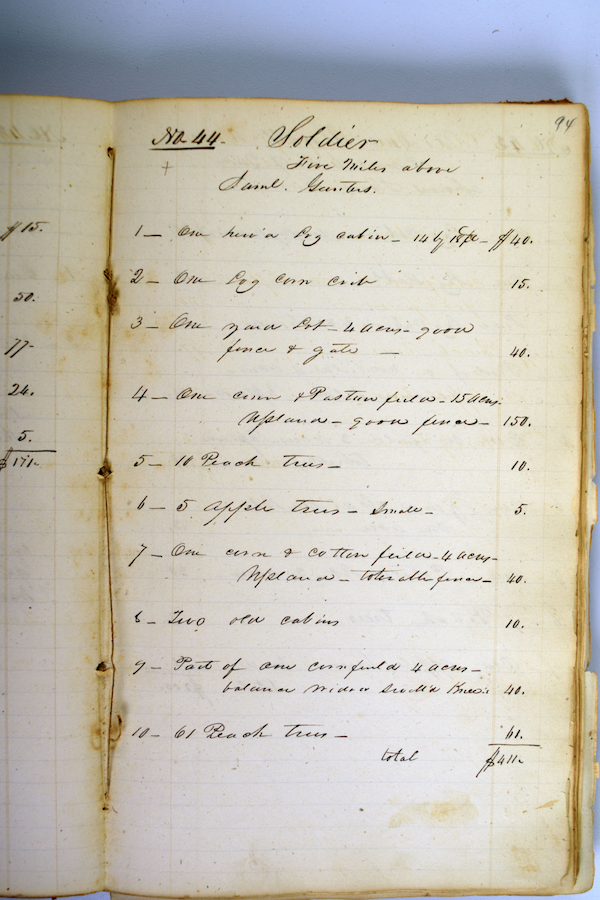 $15.
50.
77-
24.
5.
$171-
94
No 44. Soldier
+ Five Miles above
Saml. Gunters.
1 — One hew'd Log cabin — 14 by — $40.
2 — One Log corn crib 15.
3 — One yard Lot — 4 acres — good
fence & gate — 40.
4 — One corn & Pasture field — 15 acres-
Upland — good fence — 150.
5 — 10 Peach trees — 10.
6 — 5 apple trees — Small — 5.
7 — One corn & cotton field — 4 acres —
Upland — tolerable fence — 40.
8 — Two old cabins 10.
9 — Part of one cornfield 4 acres —
balance Widow 40.
10 — 61 Peach trees — 61.
total $411-